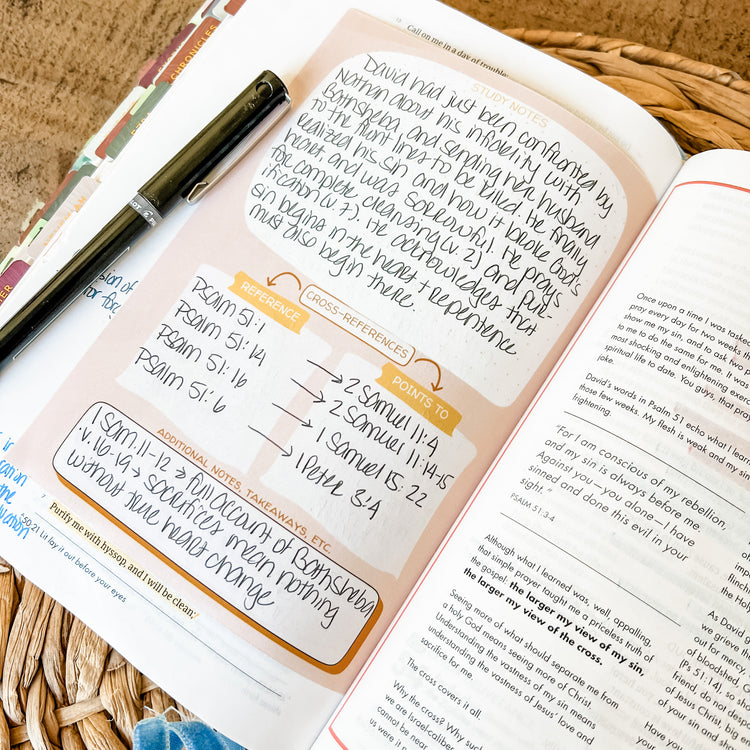 CHRONICLES
12 Call on me in a day of trouble;
STUDY NOTES
David had just been confronted by
Nathan about his infidelity with
Bathsheba and sending her husband
to the front lines to be killed. He finally
realized his sin and how it broke God's
heart, and was sorrowful. He prays
for complete cleansing (v. 2) and pur-
ification (v. 7). He acknowledges that
sin begins in the heart + repentence
must also begin there.
REFERENCE
CROSS-REFERENCES
POINTS TO
Psalm 51:1 → 2 Samuel 11:4
Psalm 51:14 → 2 Samuel 11:14-15
Psalm 51:16 → 1 Samuel 15:22
Psalm 51:6 → 1 Peter 3:4
ADDITIONAL NOTES, TAKEAWAYS, ETC.
1 Sam. 11-12 → full account of Bathsheba
·v. 16-19 → sacrifices mean nothing
without true heart change
Purify me with hyssop, and I will be clean;
50:21 Lit lay it out before your eyes
Once upon a time I was tasked
pray every day for two weeks
show me my sin, and to ask two
to me to do the same for me. It was
most shocking and enlightening exerc
spiritual life to date. You guys, that pray
joke.
David's words in Psalm 51 echo what I learn
those few weeks. My flesh is weak and my sin
frightening.
"For I am conscious of my rebellion,
and my sin is always before me.
Against you—you alone—I have
sinned and done this evil in your
sight."
PSALM 51:3-4
Although what I learned was, well, appalling,
that simple prayer taught me a priceless truth of
the gospel: the larger my view of my sin,
the larger my view of the cross.
Seeing more of what should separate me from
a holy God means seeing more of Christ.
Understanding the vastness of my sin means
understanding the vastness of Jesus' love and
sacrifice for me.
The cross covers it all.
Why the cross? Why such
we are Israel-caliber
cannot be near
us were it n
flinch
the H
As David
we grieve th
out for mercy
of bloodshed,
(Ps 51:14), so sh
friend, do not desp
of Jesus Christ, big en
of your sin and sh
Have yo